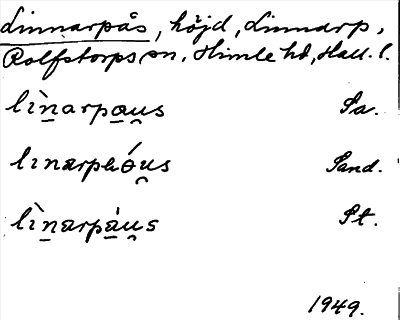 Linnarpås, höjd, Linnarp,
Rolfstorps sn, Himle hd, Hall. l.
lìn̲arpa̲u̯s Sa.
lınarpaóu̯s Sand.
lìn̲arpà̲u̯s St.
1949.